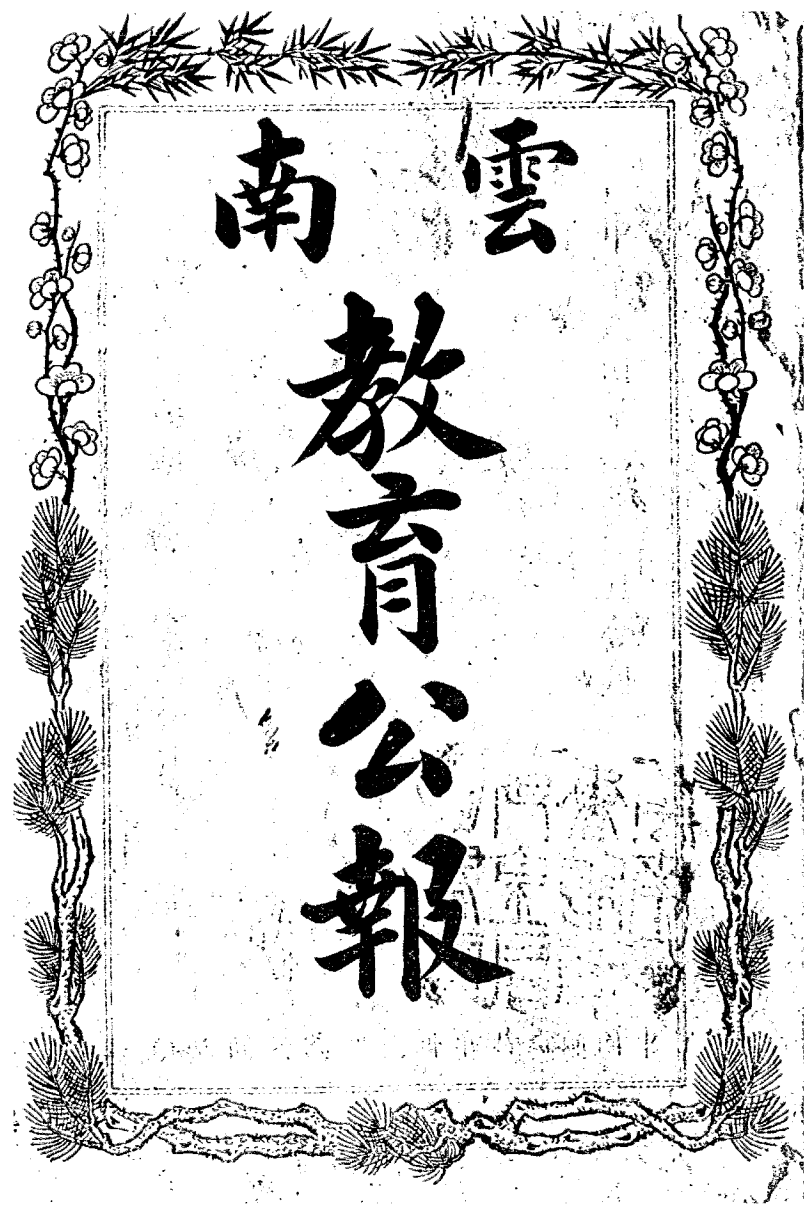 雲南
教育公報